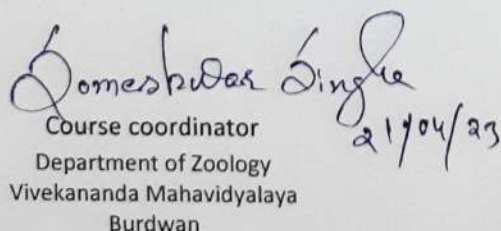 Someshwar Singha
21/04/23
Course coordinator
Department of Zoology
Vivekananda Mahavidyalaya
Burdwan